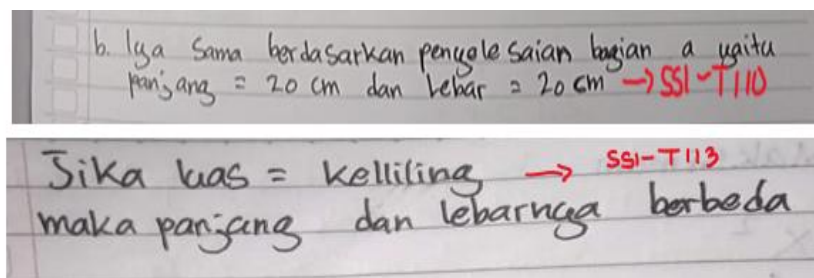 b. Iya Sama berdasarkan penyelesaian bagian a yaitu
panjang = 20 cm dan Lebar = 20 cm → SSI-T110
Jika luas = kelliling → SSI-T113
maka panjang dan lebarnya berbeda